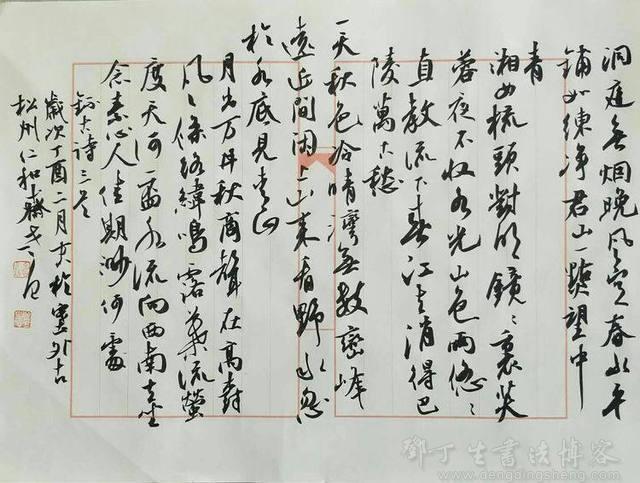 洞庭無烟晚風定春水平
鋪如練淨君山一點望中
青
湘女梳頭對明鏡〻裏芙
蓉夜不收水光山色兩悠〻
直教流下春江去消得巴
陵萬古愁
一天秋色冷晴灣無數巒峰
遠近間閑上山來看野水忽
於水底見青山
月出萬井秋商聲在高樹
風〻條絡緯鳴露葉流螢
度天河流向西南去坐
念素心人佳期渺何處
録古詩三首
歲次丁酉二月於塞外古
松州仁和
鄧丁生書法博客
www.dengdingsheng.com